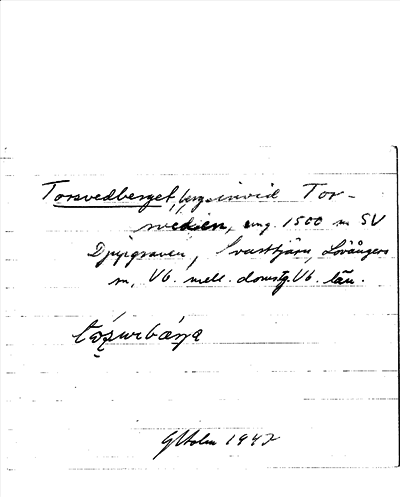 Torsvedberget, berg invid Tor-
svedien, ung. 1500 m SV
Djupgraven, Svarttjärn, Lövångers
sn, Vb. mell. domsg. Vb. län.
GHolm 1942